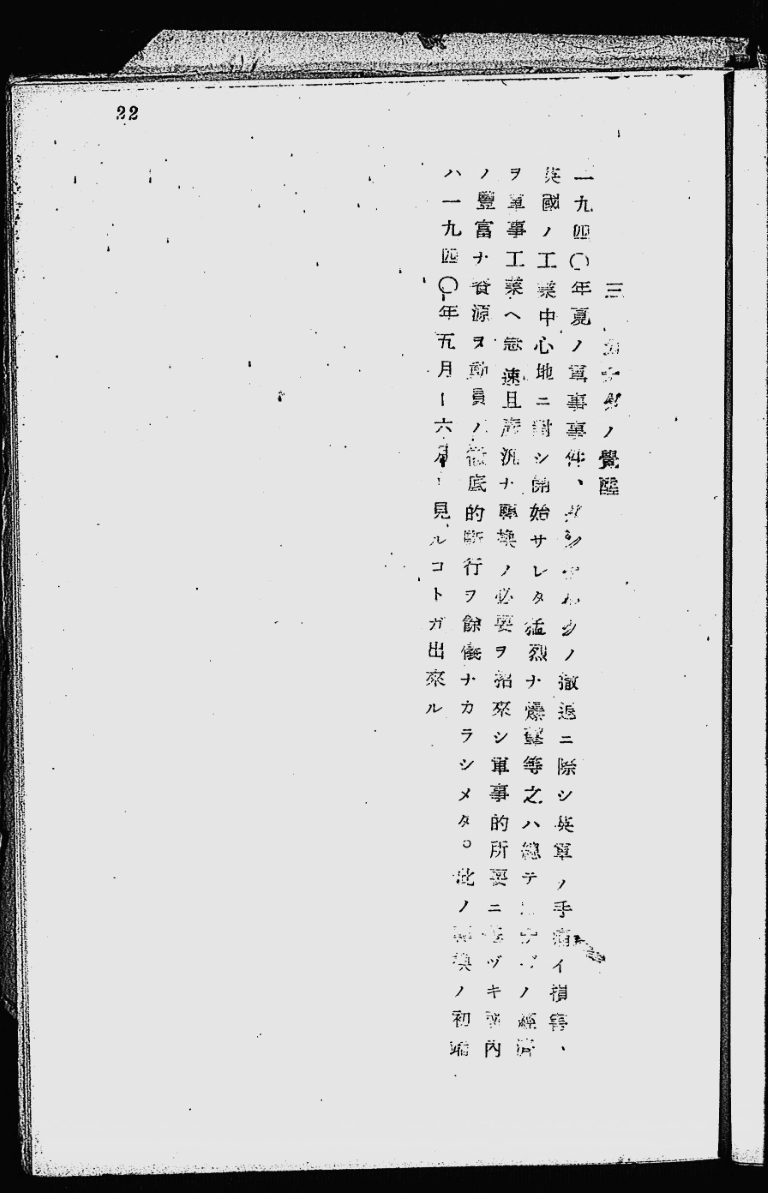 22
三、カナダノ覺醒
一九四〇年夏ノ軍事事件、ダンケルクノ撤退ニ際シ英軍ノ手痛イ損害、
英國ノ工業中心地ニ對シ開始サレタ猛烈ナ爆撃等之ハ總テカナダノ經濟
ヲ軍事工業ヘ急速且廣汎ナ轉換ノ必要ヲ招來シ軍事的所要ニ基ヅキ國內
ノ豐富ナ資源ヲ動員ノ徹底的斷行ヲ餘儀ナカラシメタ。此ノ轉換ノ初端
ハ一九四〇年五月ー六月ニ見ルコトガ出來ル